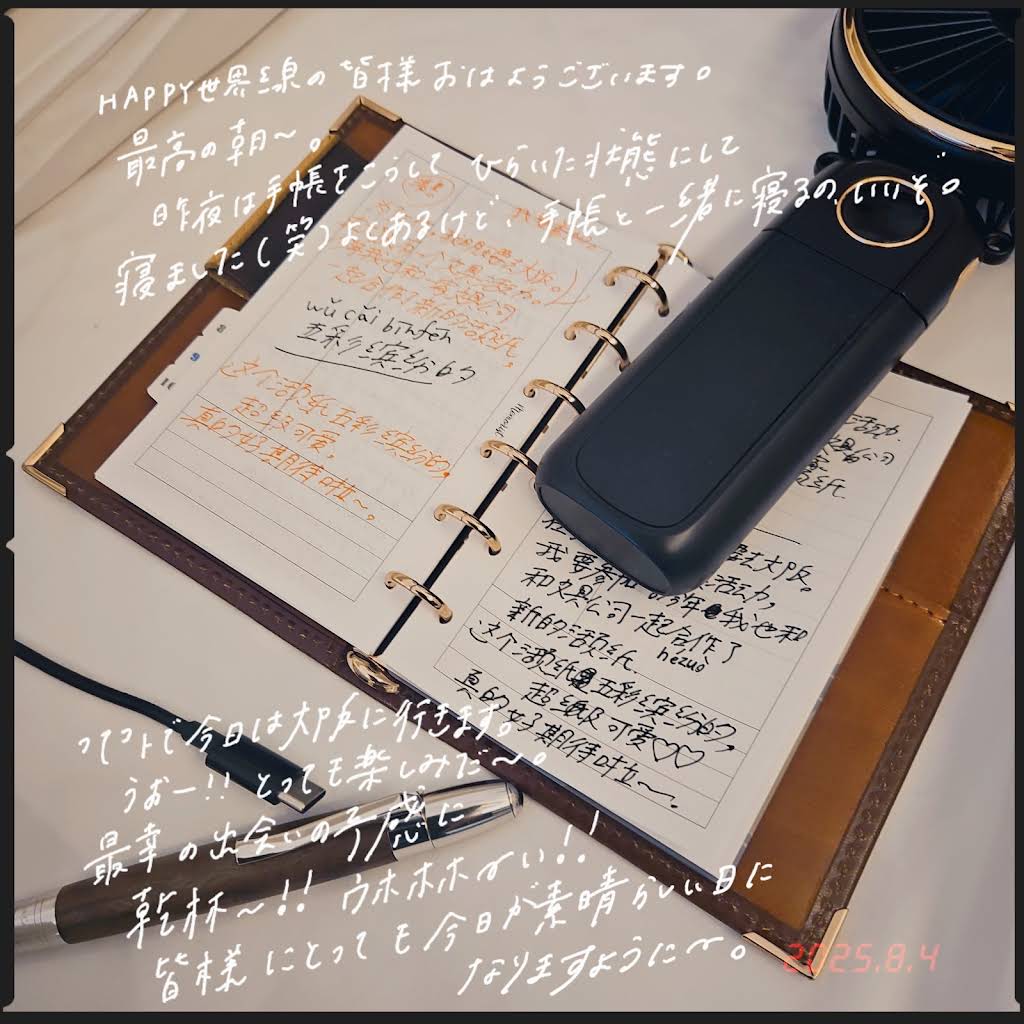 HAPPY世界線の皆様おはようございます。
最高の朝〜。
昨夜は手帳をこうしてひらいた状態にして
寝ました(笑)よくあるけど、手帳と一緒に寝るの、いいぞ。
wǔ cǎi bīn fēn
五彩缤纷的
这个活页纸五彩缤纷的,
超级可爱,
真的好期待啦〜,
活动.
文具公司
页纸
去大阪。
我要参加 活动,
今年 我也和
和文具公司一起合作了
hézuò
新的活页纸
这个活页纸 五彩缤纷的,
超级可爱♡♡
真的好期待啦〜,
今日は大阪に行きます。
うおー!!とっても楽しみだ〜。
最幸の出会いの予感に
乾杯〜!!ウホホホーい!!
皆様にとっても今日が素晴らしい日に
なりますように〜。
2025.8.4